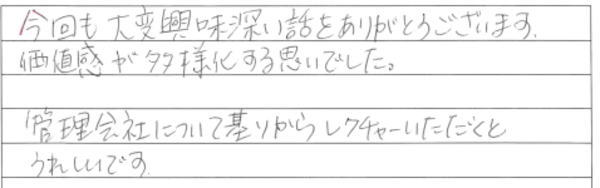 今回も大変興味深い話をありがとうございます.
価値感が多様化する思いでした。
管理会社について基りからレクチャーいただくと
うれしいです.